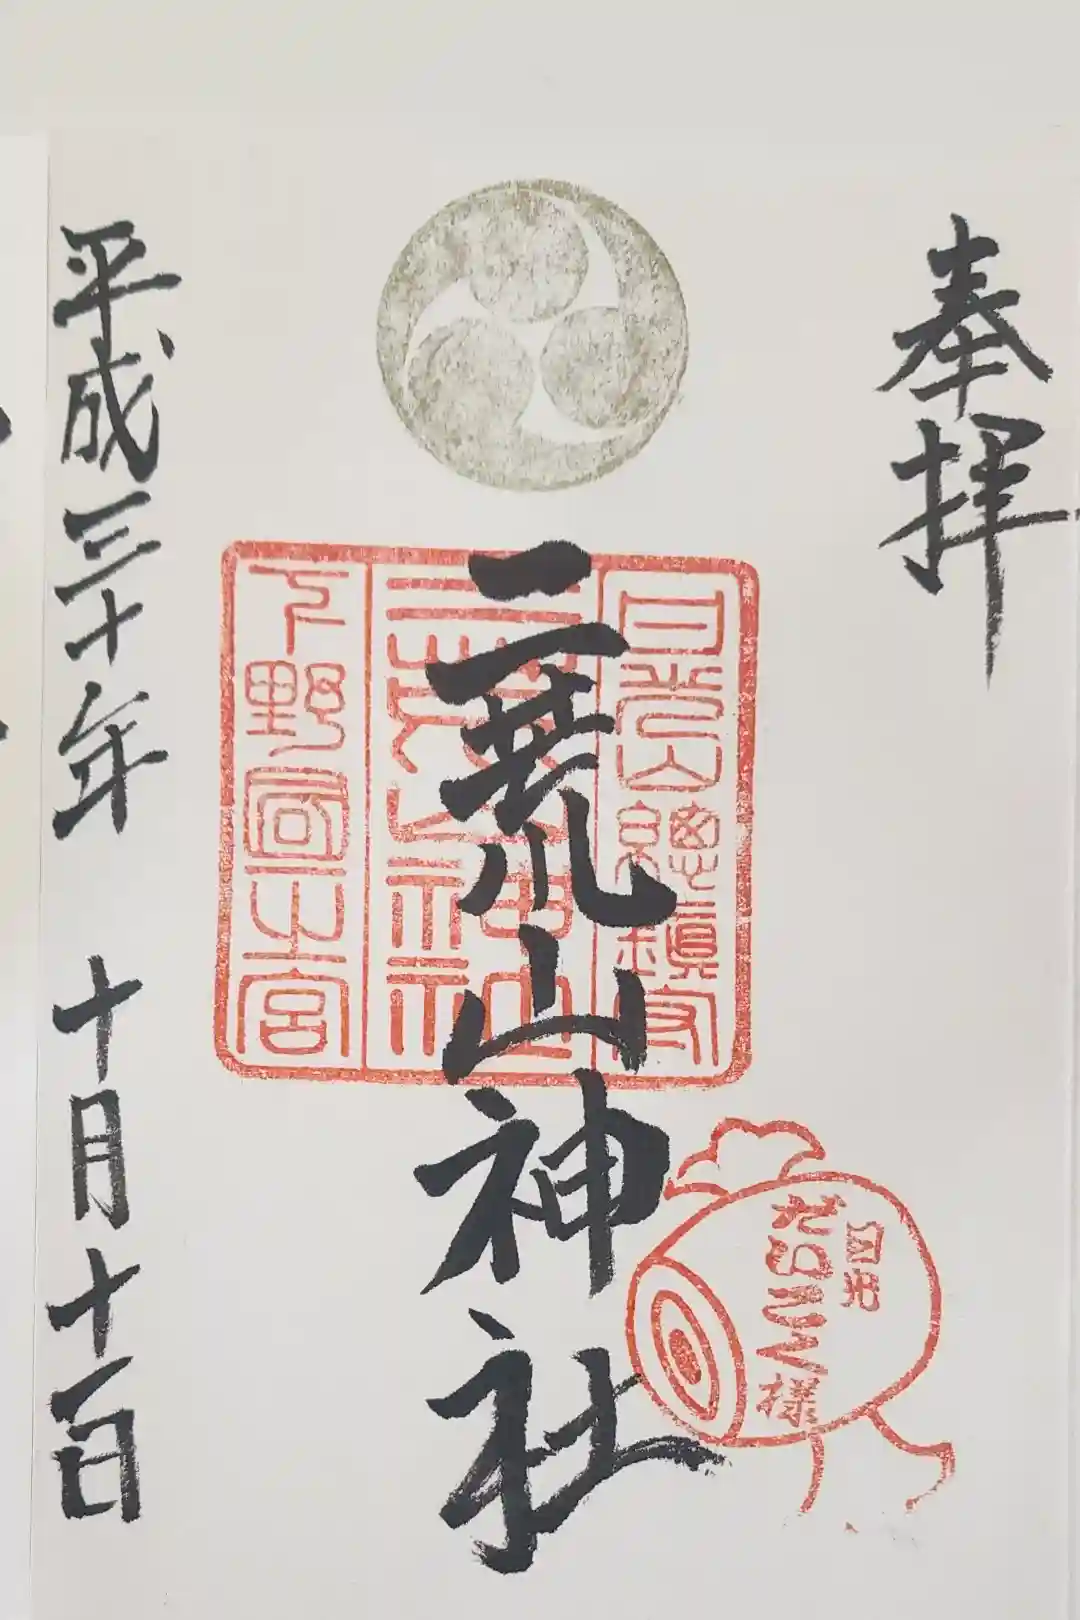 奉拝
日光山總鎮守
二荒山神社
下野國一之宮
二荒山神社
日光
だいこく様
平成三十年 十月十一日